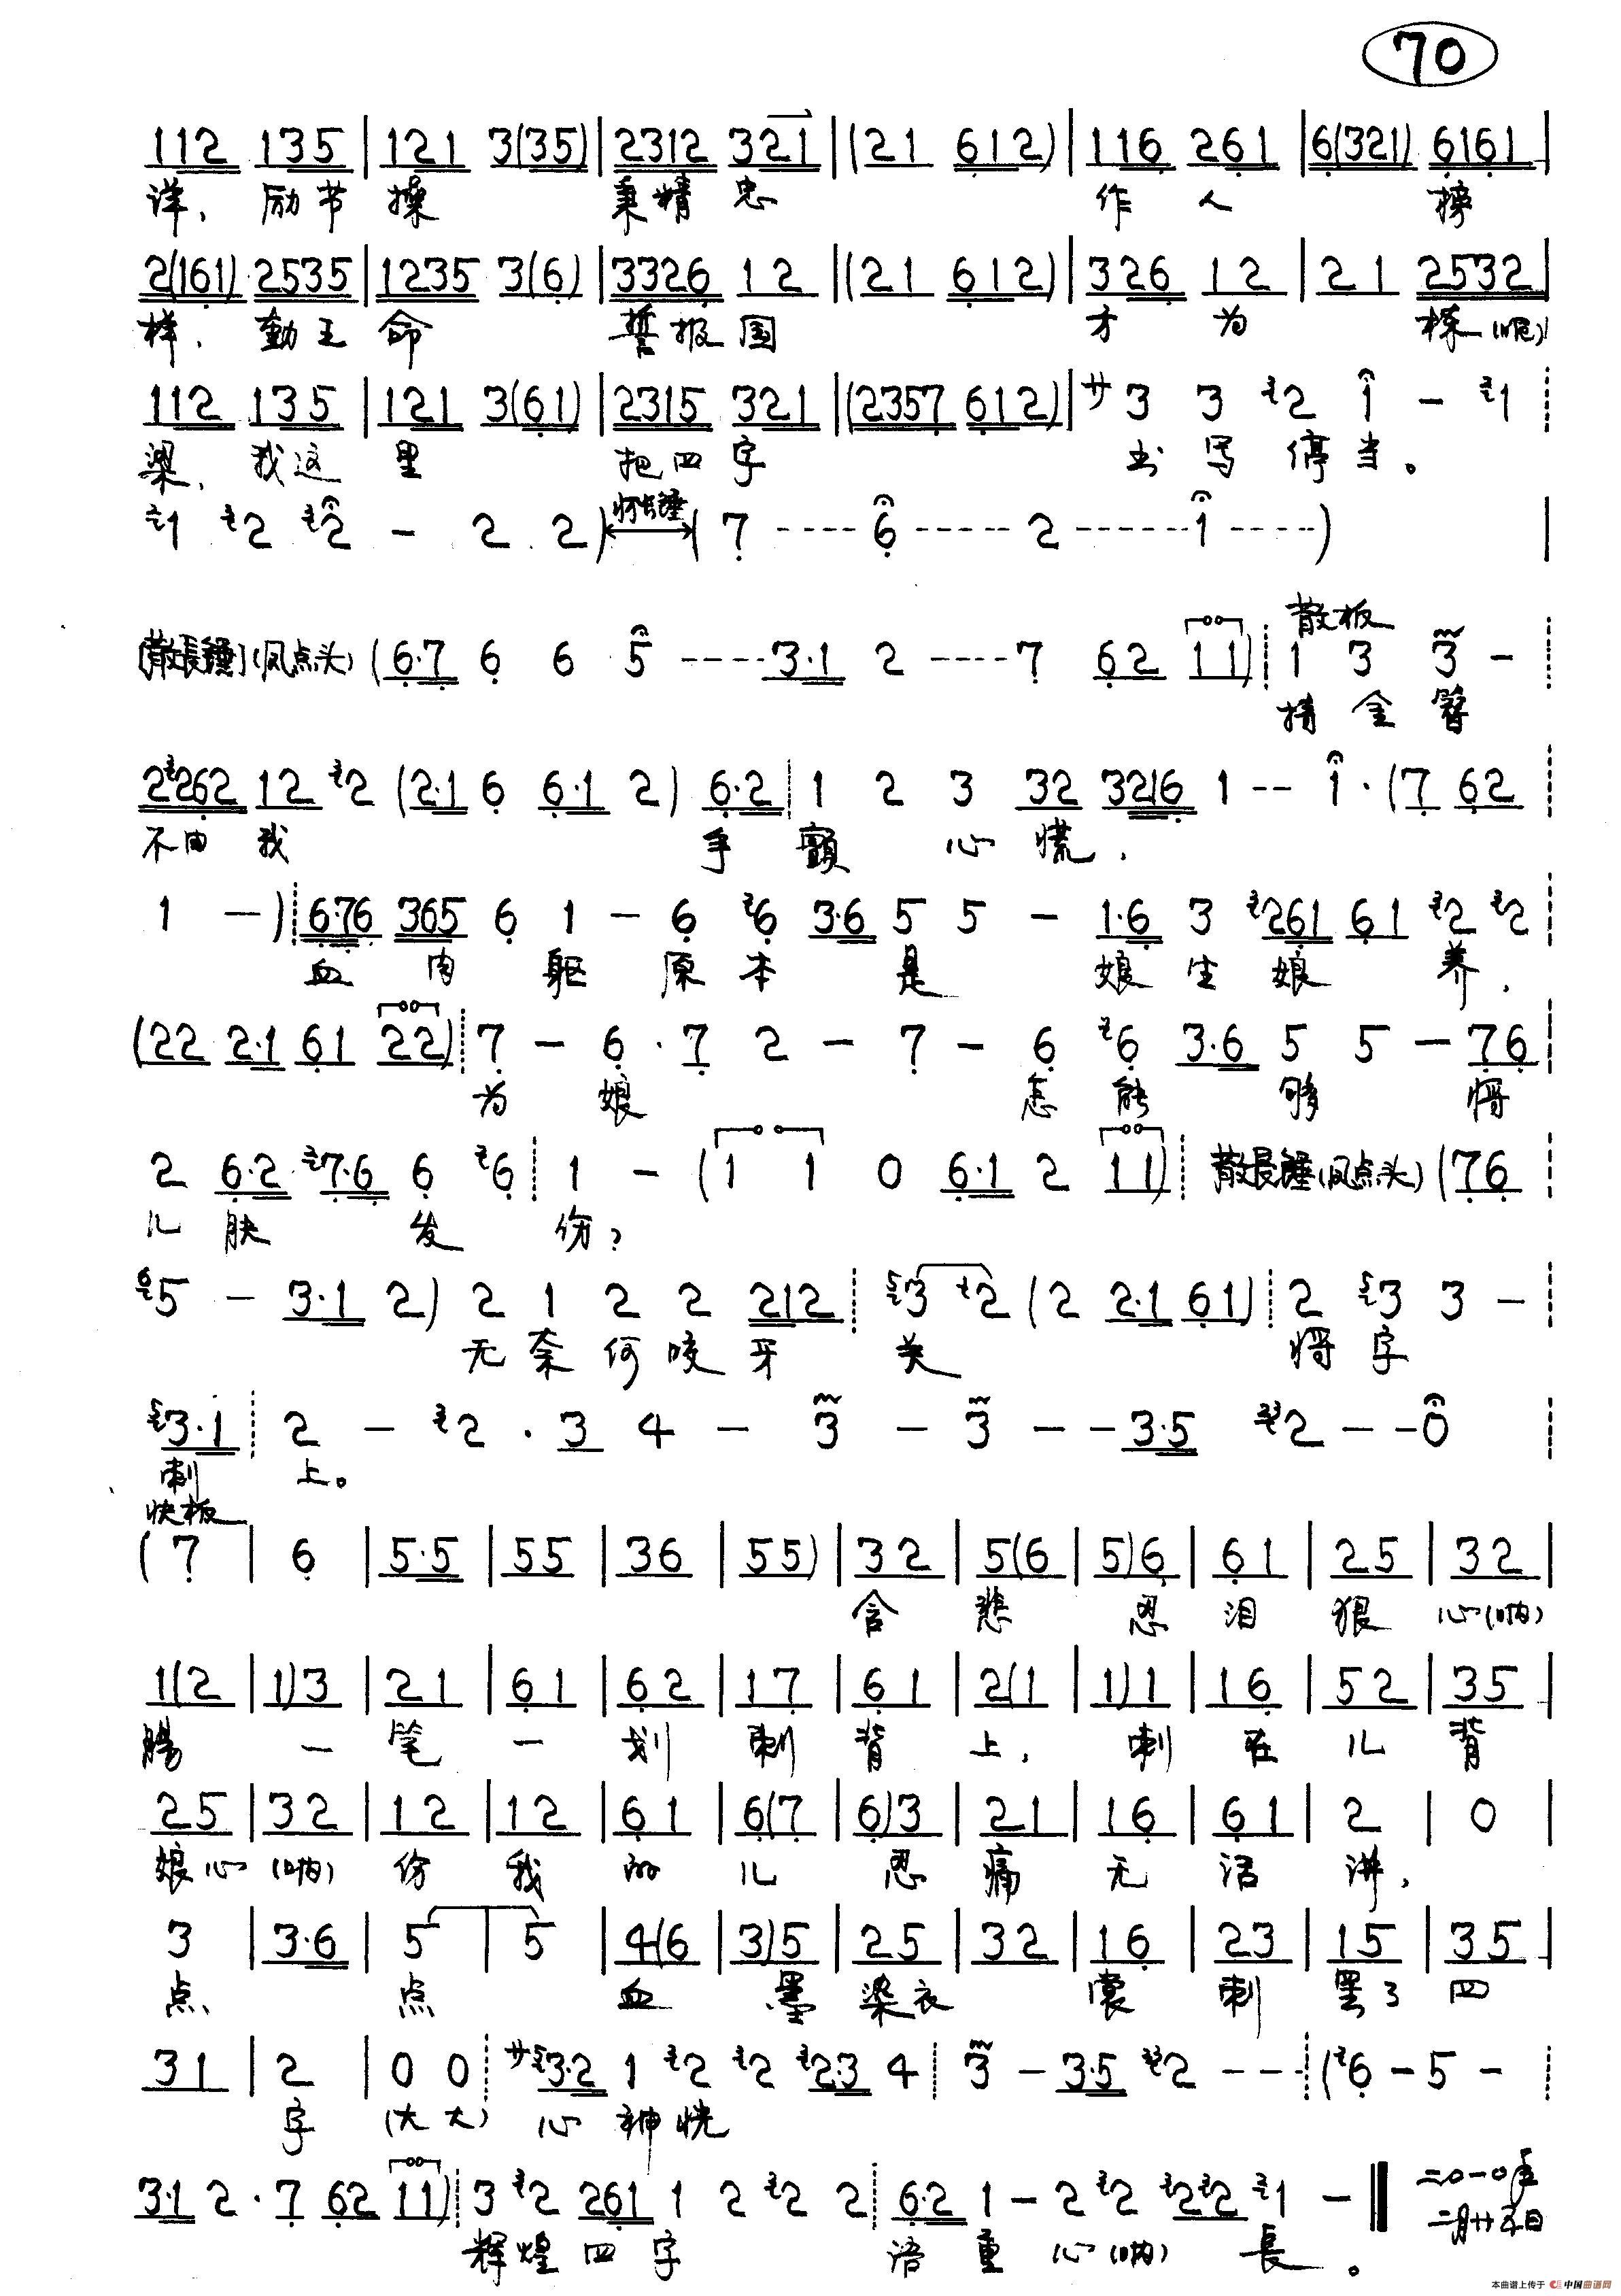 70
112 135 | 121 3(35) | 2312 321 | (21 612) | 116 261 | 6(321) 6161 |
详, 励节操 秉精忠 作人榜
2(161) 2535 | 1235 3(6) | 3326 12 | (21 612) | 326 12 | 21 2532 |
样, 勤王命 誓报国 才为栋(呃)
112 135 | 121 3(61) | 2315 321 | (2357 612) | 廾 3 3 2 1 - 1
梁, 我这里 把四字 书写停当。
1 2 2 - 2 2) ( 7 ---- 6 ----- 2 ------ 1 ----) |
散板
[散長锤](凤点头) (6·7 6 6 5 ---- 3·1 2 ---- 7 62 11) 1 3 3 -
持金簪
22262 12 2 (2·1 6 6·1 2) 6·2 1 2 3 32 3216 1 -- 1·(7 62
不由我 手颤心慌,
1 -) 6·76 365 6 1 - 6 6 3·6 5 5 - 1·6 3 261 61 2 2
血肉躯原本是 娘生娘养,
(22 2·1 61 22) 7 - 6·7 2 - 7 - 6 6 3·6 5 5 - 76
为娘 怎能够将
2 6·2 7·6 6 6 1 - (1 1 0 6·1 2 11) 散長锤(凤点头) (76
儿肤发伤?
5 - 3·1 2) 2 1 2 2 212 3 2 (2 2·1 61) 2 3 3 -
无奈何咬牙关 将字
3·1 2 - 2·3 4 - 3 - 3 -- 3·5 2 -- 0
刺上。
快板
(7 | 6 | 5·5 | 55 | 36 | 55) | 32 | 5(6 | 5)6 | 61 | 25 | 32 |
含悲忍泪狠心(呐)
1(2 | 1)3 | 21 | 61 | 62 | 17 | 61 | 2(1 | 1)1 | 16 | 52 | 35 |
肠 一笔一划刺背上, 刺在儿背
25 | 32 | 12 | 12 | 61 | 6(7 | 6)3 | 21 | 16 | 61 | 2 | 0
娘心(呐)伤我的儿忍痛无话讲,
3 | 3·6 | 5 | 5 | 4(6 | 3)5 | 25 | 32 | 16 | 23 | 15 | 35 |
点点血墨染衣裳刺罢了四
31 | 2 | 0 0 廾 3·2 1 2 2 2·3 4 3 - 3·5 2 --- (6 - 5 -
字 (大大) 心神恍
3·1 2·7 62 11) 3 2 261 1 2 2 2 6·2 1 - 2 2 22 1 -
辉煌四字 语重心(呐)長。
二〇一〇年
二月廿五日
本曲谱上传于 中国曲谱网